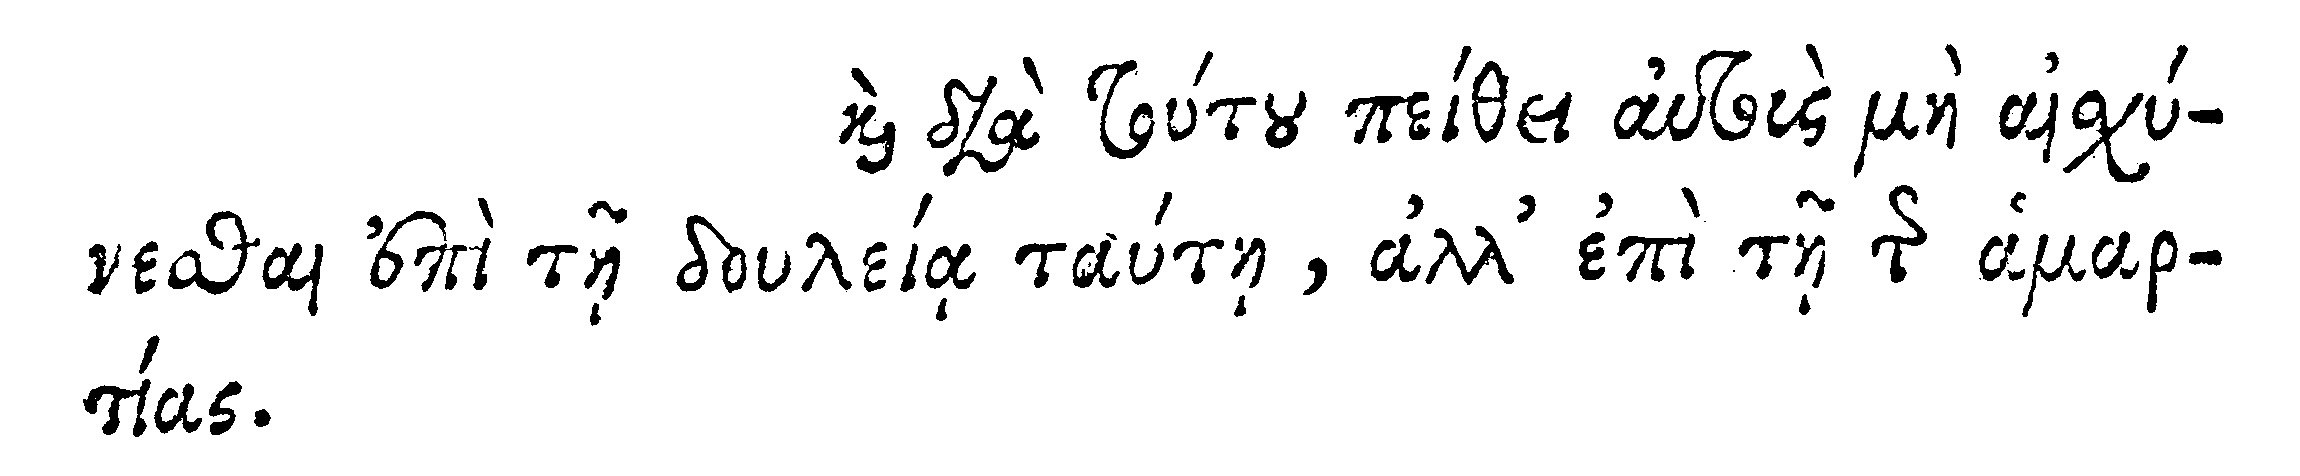 καὶ διὰ τούτου πείθει αὐτοὺς μὴ αἰσχύ-
νεσθαι ἐπὶ τῇ δουλείᾳ ταύτῃ, ἀλλ’ ἐπὶ τῇ τῆς ἁμαρ-
τίας.